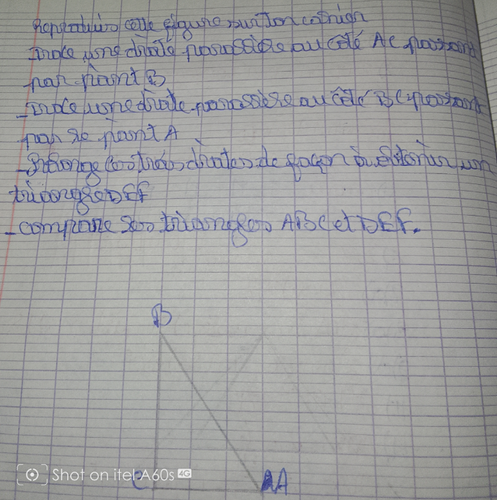 Reproduis cette figure sur ton cahier
Trace une droite parallèle au côté AC passant
par point B
- Trace une droite parallèle au côté BC passant
par le point A
- Prolonge ces trois droites de façon à obtenir un
triangle DEF
- compare les triangles ABC et DEF.
B
C A
Shot on itel A60s 4G